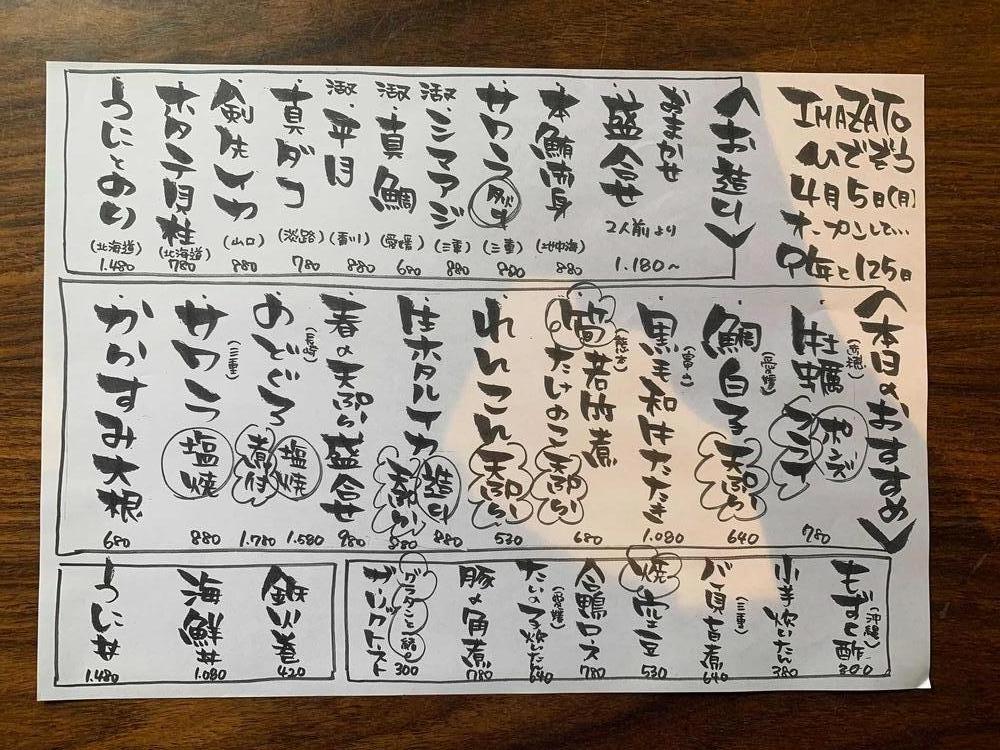 IMAZATO
ひでぞう
4月5日(月)
オープンして…
中年と125日
〈お造り〉
おまかせ
盛合せ
2人前より
1.180~
本鮪赤身
(地中海)
880
サワラ
(三重)
880
活〆シマアジ
(三重)
880
活〆真鯛
(愛媛)
680
活〆平目
(香川)
880
真ダコ
(淡路)
780
剣先イカ
(山口)
880
ホタテ貝柱
(北海道)
780
うにとのり
(北海道)
1.480
〈本日のおすすめ〉
牡蠣
ポンズ
フライ
780
鯛白子
(愛媛)
天ぷら
640
黒毛和牛たたき
1.080
筍
(熊本)
若竹煮
たけのこ天ぷら
680
れんこん天ぷら
530
生ホタルイカ
造り
880
天ぷら
880
春の天ぷら盛合せ
980
のどぐろ
(長崎)
塩焼
1.580
煮付
1.780
サワラ
(三重)
塩焼
880
からすみ大根
680
もずく酢
(沖縄)
300
小芋炊いたん
380
バイ貝旨煮
(三重)
640
焼空豆
530
合鴨ロース
780
たいの子炊いたん
(愛媛)
640
豚の角煮
780
グラタンと一緒に
ガーリックトースト
300
鉄火巻
420
海鮮丼
1.080
うに丼
1.480